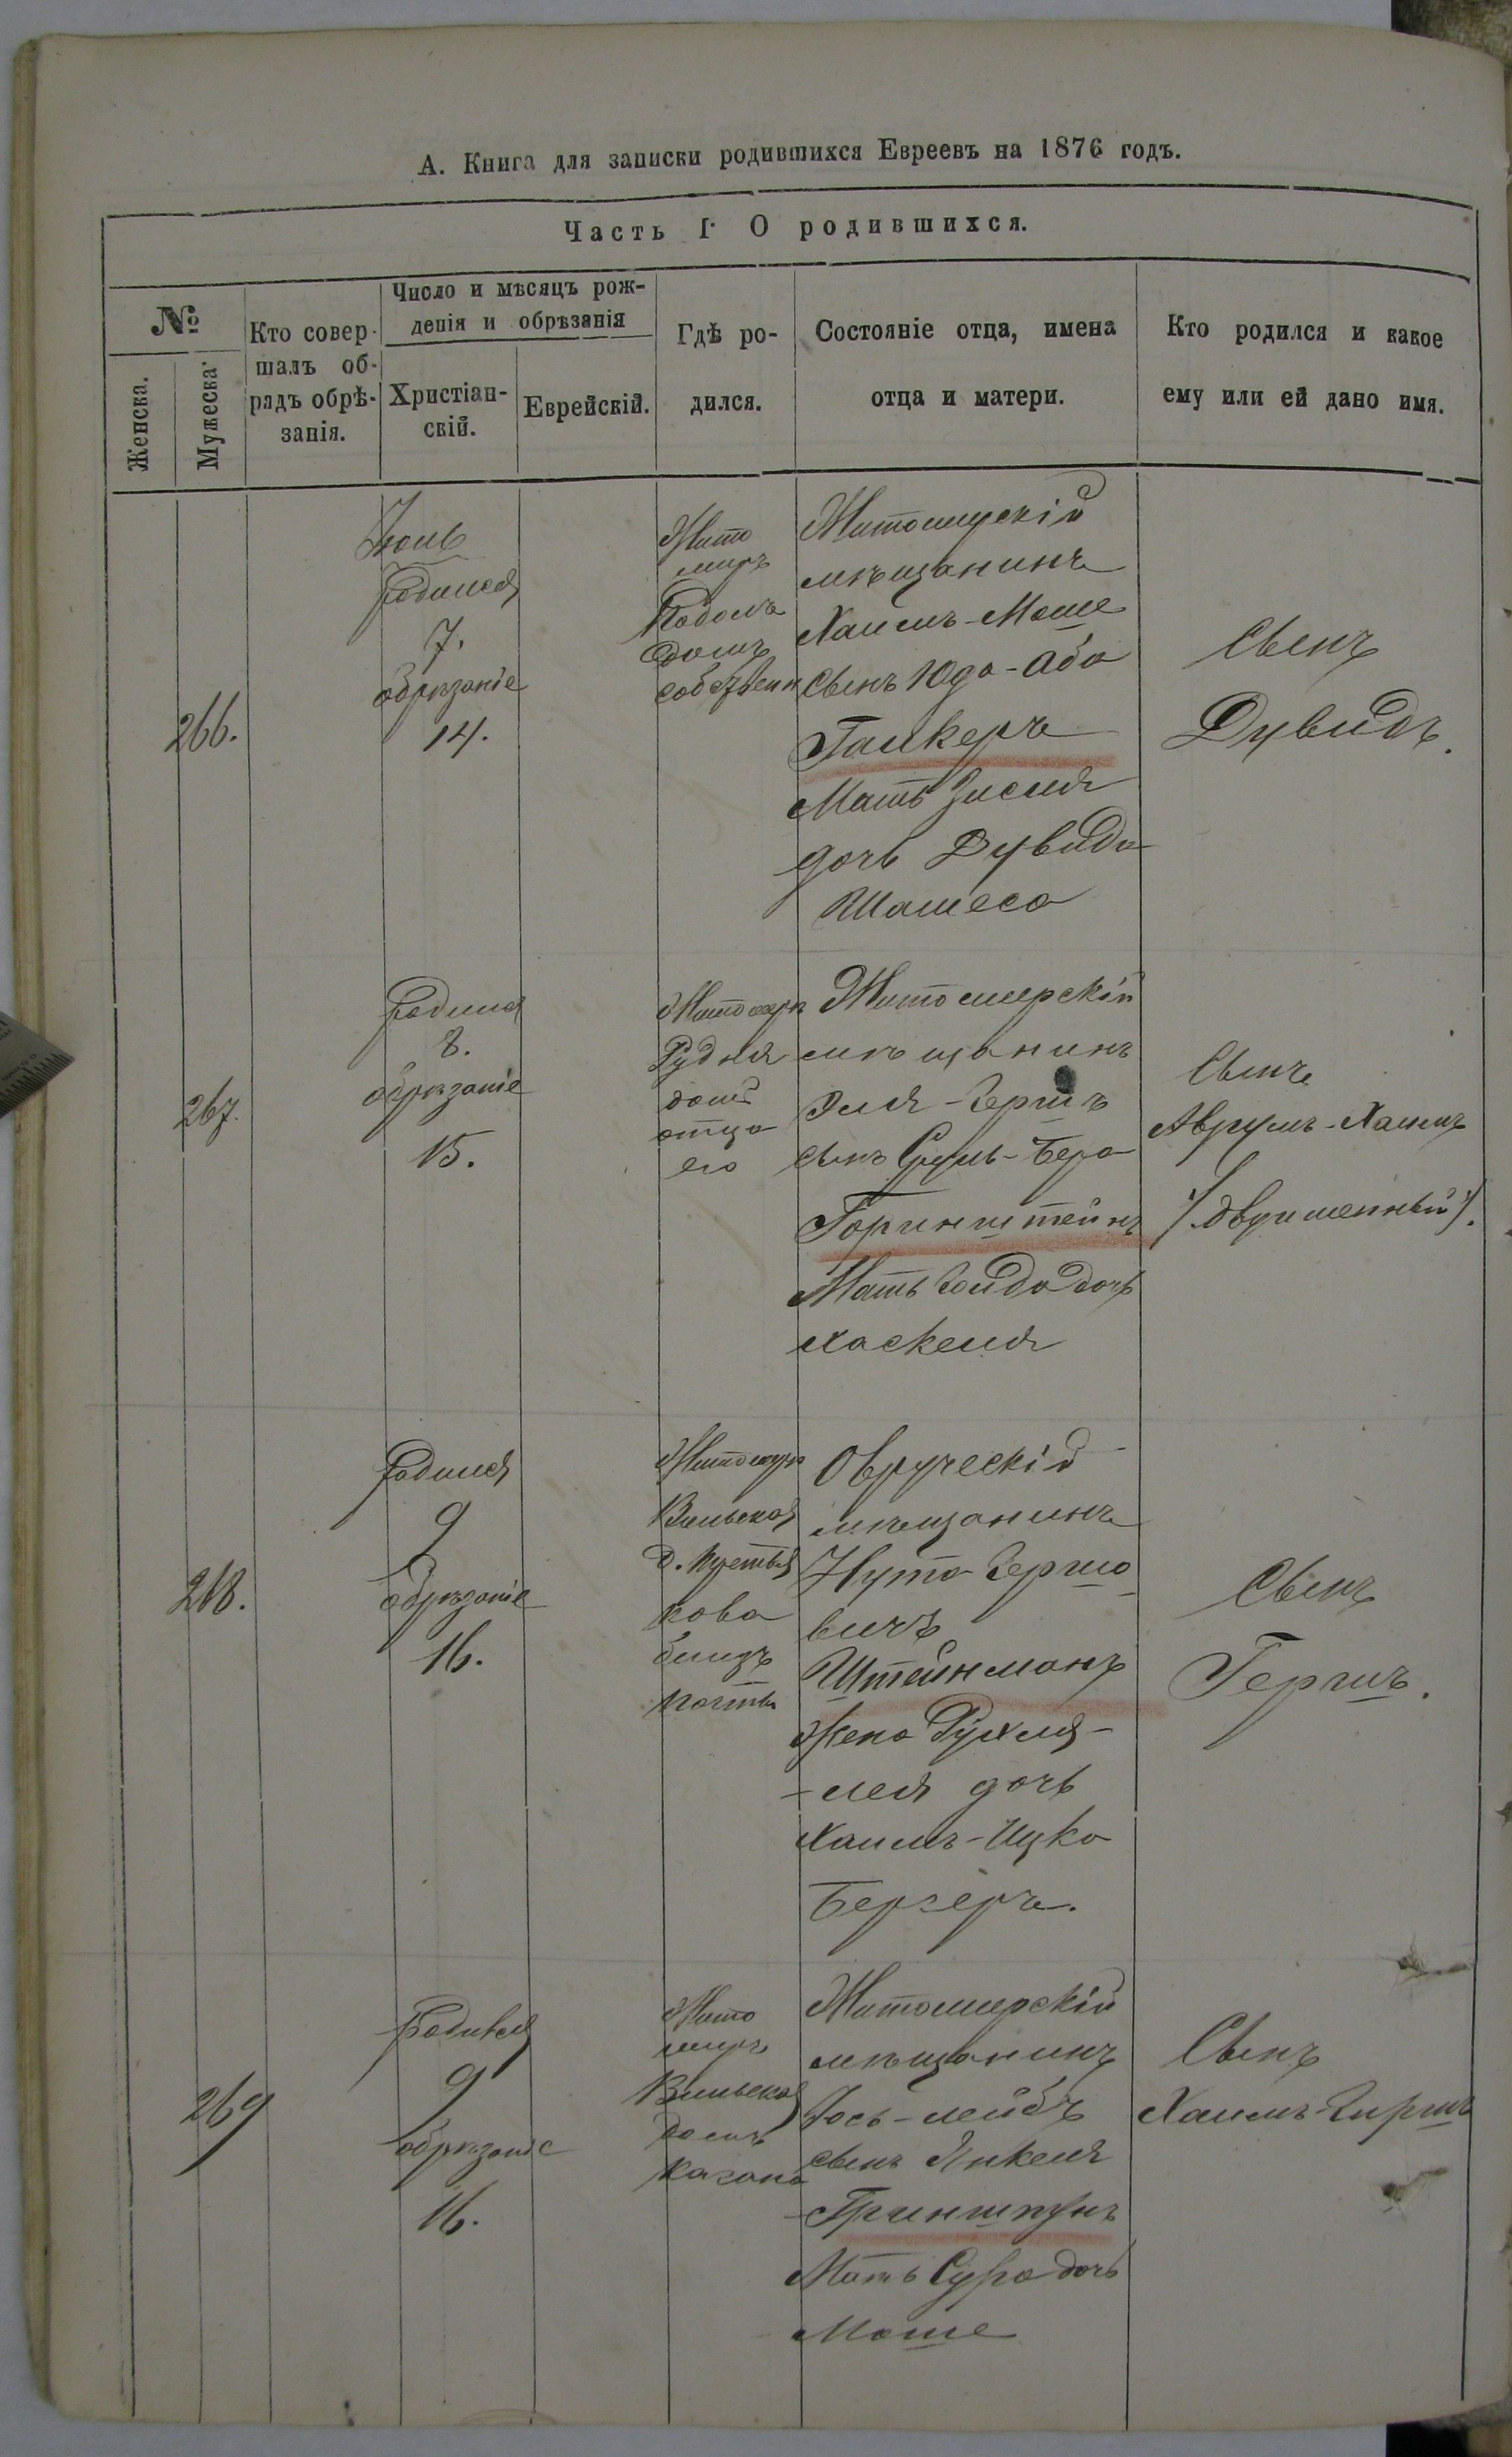 А. Книга для записки родившихся Евреевъ на 1876 годъ.
Часть I. О родившихся.
№
Женска.
Мужеска.
Кто совер-
шалъ об-
рядъ обрѣ-
занія.
Число и мѣсяцъ рож-
денія и обрѣзанія
Христіан-
скій.
Еврейскій.
Гдѣ ро-
дился.
Состояніе отца, имена
отца и матери.
Кто родился и какое
ему или ей дано имя.
266.
Родился
7.
обрѣзаніе
14.
Жито
миръ
Подолъ
домъ
собствен
Житомирскій
мѣщанинъ
Хаимъ-Моше
сынъ Юда-Аба
Мать Зисля
дочь Дувида
Сынъ
Дувидъ.
267.
Родился
8.
обрѣзаніе
15.
Житомиръ
Рудня
домъ
отца
его
Житомирскій
мѣщанинъ
Эля-Гершъ
сынъ Сруль-Бера
Горинштейнъ
Мать дочь
Хаскеля
Сынъ
Аврумъ-Хаимъ
/двуименный/.
268.
Родился
9
обрѣзаніе
16.
Житомиръ
Вильская
кова
близъ
почты
Овруческій
мѣщанинъ
Нута Гершо
вичъ
Штейнманъ
Жена Рухля-
-лея дочь
Хаимъ-Ицко
Бергеръ.
Сынъ
Гершъ.
269
Родился
9
обрѣзаніе
16.
Жито
миръ
Вильская
домъ
Кагана
Житомирскій
мѣщанинъ
Іось-лейбъ
сынъ Янкеля
Гриншпунъ
Мать Сура дочь
Моше
Сынъ
Хаимъ-Гиршъ